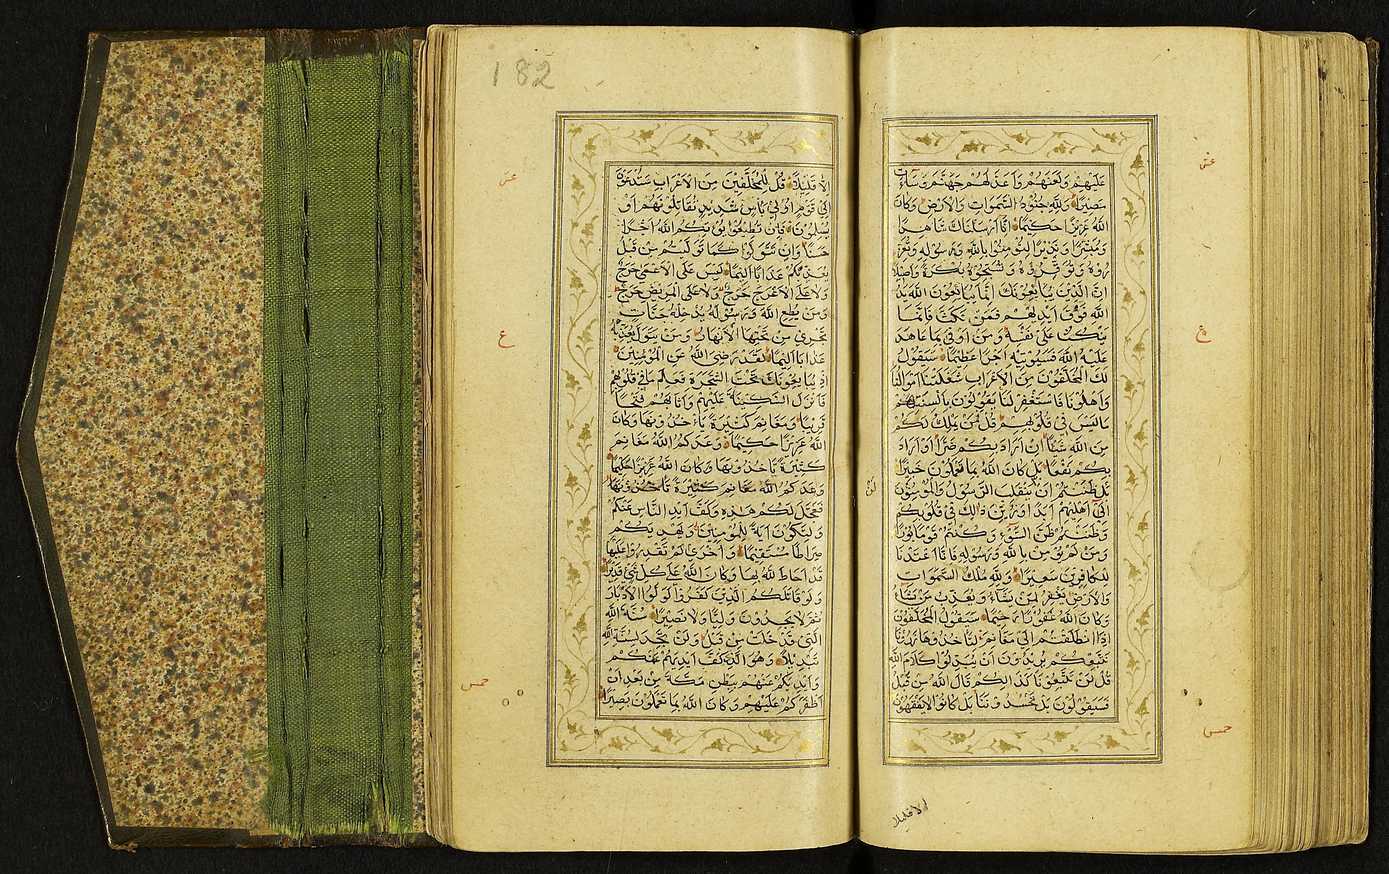 عش
عَلَيْهِمْ وَلَعَنَهُمْ وَاَعَدَّ لَهُمْ جَهَنَّمَ وَسَآءَتْ
مَصِيرًا وَلِلّهِ جُنُودُ السَّمَوَاتِ وَالاَرْضِ وَكَانَ
اللهُ عَزِيزًا حَكِيمًا اِنَّا اَرْسَلْنَاكَ شَاهِدًا
وَمُبَشِّرًا وَنَذِيرًا لِتُؤْمِنُوا بِاللهِ وَرَسُولِهِ وَتُعَزِّ
رُوهُ وَتُوَقِّرُوهُ وَتُسَبِّحُوهُ بُكْرَةً وَاَصِيلًا
اِنَّ الَّذِينَ يُبَايِعُونَكَ اِنَّمَا يُبَايِعُونَ اللهَ يَدُ
اللهِ فَوْقَ اَيْدِيهِمْ فَمَنْ نَكَثَ فَاِنَّمَا
يَنْكُثُ عَلَى نَفْسِهِ وَمَنْ اَوْفَى بِمَا عَاهَدَ
ع
عَلَيْهِ اللهَ فَسَيُؤْتِيهِ اَجْرًا عَظِيمًا سَيَقُولُ
لَكَ الْمُخَلَّفُونَ مِنَ الاَعْرَابِ شَغَلَتْنَا اَمْوَالُنَا
وَاَهْلُونَا فَاسْتَغْفِرْ لَنَا يَقُولُونَ بِاَلْسِنَتِهِمْ
مَا لَيْسَ فِي قُلُوبِهِمْ قُلْ فَمَنْ يَمْلِكُ لَكُمْ
مِنَ اللهِ شَيْئًا اِنْ اَرَادَ بِكُمْ ضَرًّا اَوْ اَرَادَ
بِكُمْ نَفْعًا بَلْ كَانَ اللهُ بِمَا تَعْمَلُونَ خَبِيرًا
بَلْ ظَنَنْتُمْ اَنْ يَنْقَلِبَ الرَّسُولُ وَالْمُؤْمِنُونَ
لن
اِلَى اَهْلِيهِمْ اَبَدًا وَزُيِّنَ ذَالِكَ فِي قُلُوبِكُمْ
وَظَنَنْتُمْ ظَنَّ السَّوْءِ وَكُنْتُمْ قَوْمًا بُورًا
وَمَنْ لَمْ يُؤْمِنْ بِاللهِ وَرَسُولِهِ فَاِنَّا اَعْتَدْنَا
لِلْكَافِرِينَ سَعِيرًا وَلِلّهِ مُلْكُ السَّمَوَاتِ
وَالاَرْضِ يَغْفِرُ لِمَنْ يَشَآءُ وَيُعَذِّبُ مَنْ يَشَآءُ
وَكَانَ اللهُ غَفُورًا رَحِيمًا سَيَقُولُ الْمُخَلَّفُونَ
اِذَا انْطَلَقْتُمْ اِلَى مَغَانِمَ لِتَاْخُذُوهَا ذَرُونَا
نَتَّبِعْكُمْ يُرِيدُونَ اَنْ يُبَدِّلُوا كَلَامَ اللهِ
قُلْ لَنْ تَتَّبِعُونَا كَذَالِكُمْ قَالَ اللهُ مِنْ قَبْلُ
فَسَيَقُولُونَ بَلْ تَحْسُدُونَنَا بَلْ كَانُوا لَا يَفْقَهُونَ
خمس
الا قليلا
182
عش
اِلَّا قَلِيلًا قُلْ لِلْمُخَلَّفِينَ مِنَ الاَعْرَابِ سَتُدْعَوْنَ
اِلَى قَوْمٍ اُولِي بَاْسٍ شَدِيدٍ تُقَاتِلُونَهُمْ اَوْ
يُسْلِمُونَ فَاِنْ تُطِيعُوا يُؤْتِكُمُ اللهُ اَجْرًا
حَسَنًا وَاِنْ تَتَوَلَّوْا كَمَا تَوَلَّيْتُمْ مِنْ قَبْلُ
يُعَذِّبْكُمْ عَذَابًا اَلِيمًا لَيْسَ عَلَى الاَعْمَى حَرَجٌ
وَلَا عَلَى الاَعْرَجِ حَرَجٌ وَلَا عَلَى الْمَرِيضِ حَرَجٌ
وَمَنْ يُطِعِ اللهَ وَرَسُولَهُ يُدْخِلْهُ جَنَّاتٍ
تَجْرِي مِنْ تَحْتِهَا الاَنْهَارُ وَمَنْ يَتَوَلَّ يُعَذِّبْهُ
ع
عَذَابًا اَلِيمًا لَقَدْ رَضِيَ اللهُ عَنِ الْمُؤْمِنِينَ
اِذْ يُبَايِعُونَكَ تَحْتَ الشَّجَرَةِ فَعَلِمَ مَا فِي قُلُوبِهِمْ
فَاَنْزَلَ السَّكِينَةَ عَلَيْهِمْ وَاَثَابَهُمْ فَتْحًا
قَرِيبًا وَمَغَانِمَ كَثِيرَةً يَاْخُذُونَهَا وَكَانَ
اللهُ عَزِيزًا حَكِيمًا وَعَدَكُمُ اللهُ مَغَانِمَ
كَثِيرَةً تَاْخُذُونَهَا وَكَانَ اللهُ عَزِيزًا حَكِيمًا
وَعَدَكُمُ اللهُ مَغَانِمَ كَثِيرَةً تَاْخُذُونَهَا
فَعَجَّلَ لَكُمْ هَذِهِ وَكَفَّ اَيْدِيَ النَّاسِ عَنْكُمْ
وَلِتَكُونَ آيَةً لِلْمُؤْمِنِينَ وَيَهْدِيَكُمْ
صِرَاطًا مُسْتَقِيمًا وَاُخْرَى لَمْ تَقْدِرُوا عَلَيْهَا
قَدْ اَحَاطَ اللهُ بِهَا وَكَانَ اللهُ عَلَى كُلِّ شَيْءٍ قَدِيرًا
وَلَوْ قَاتَلَكُمُ الَّذِينَ كَفَرُوا لَوَلَّوُا الاَدْبَارَ
ثُمَّ لَا يَجِدُونَ وَلِيًّا وَلَا نَصِيرًا سُنَّةَ اللهِ
الَّتِي قَدْ خَلَتْ مِنْ قَبْلُ وَلَنْ تَجِدَ لِسُنَّةِ اللهِ
تَبْدِيلًا وَهُوَ الَّذِي كَفَّ اَيْدِيَهُمْ عَنْكُمْ
خمس
وَاَيْدِيَكُمْ عَنْهُمْ بِبَطْنِ مَكَّةَ مِنْ بَعْدِ اَنْ
اَظْفَرَكُمْ عَلَيْهِمْ وَكَانَ اللهُ بِمَا تَعْمَلُونَ بَصِيرًا